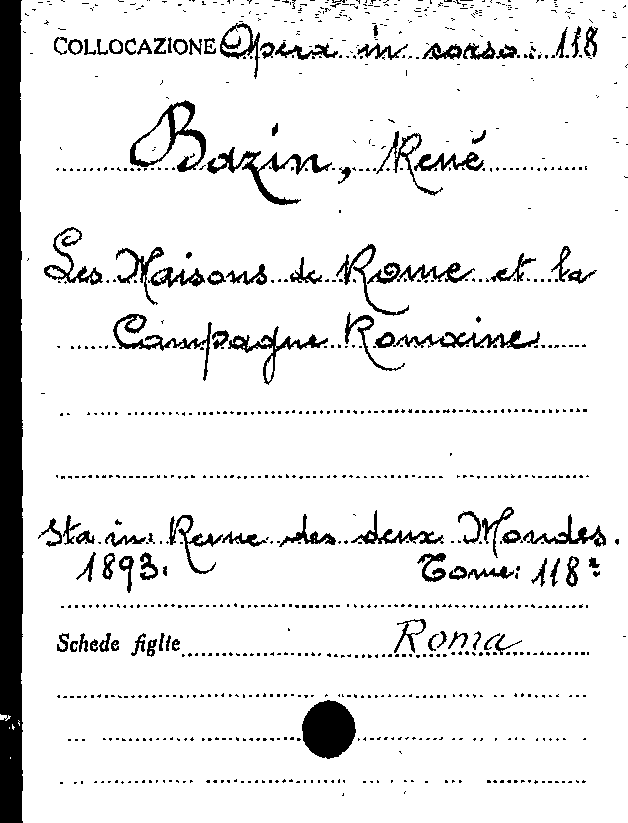 COLLOCAZIONE Opera in corso. 118
Bazin, René
Les Maisons de Rome et la
Campagne Romaine
Sta in: Revue des deux Mondes.
1893. Tome: 118º
Schede figlie Roma